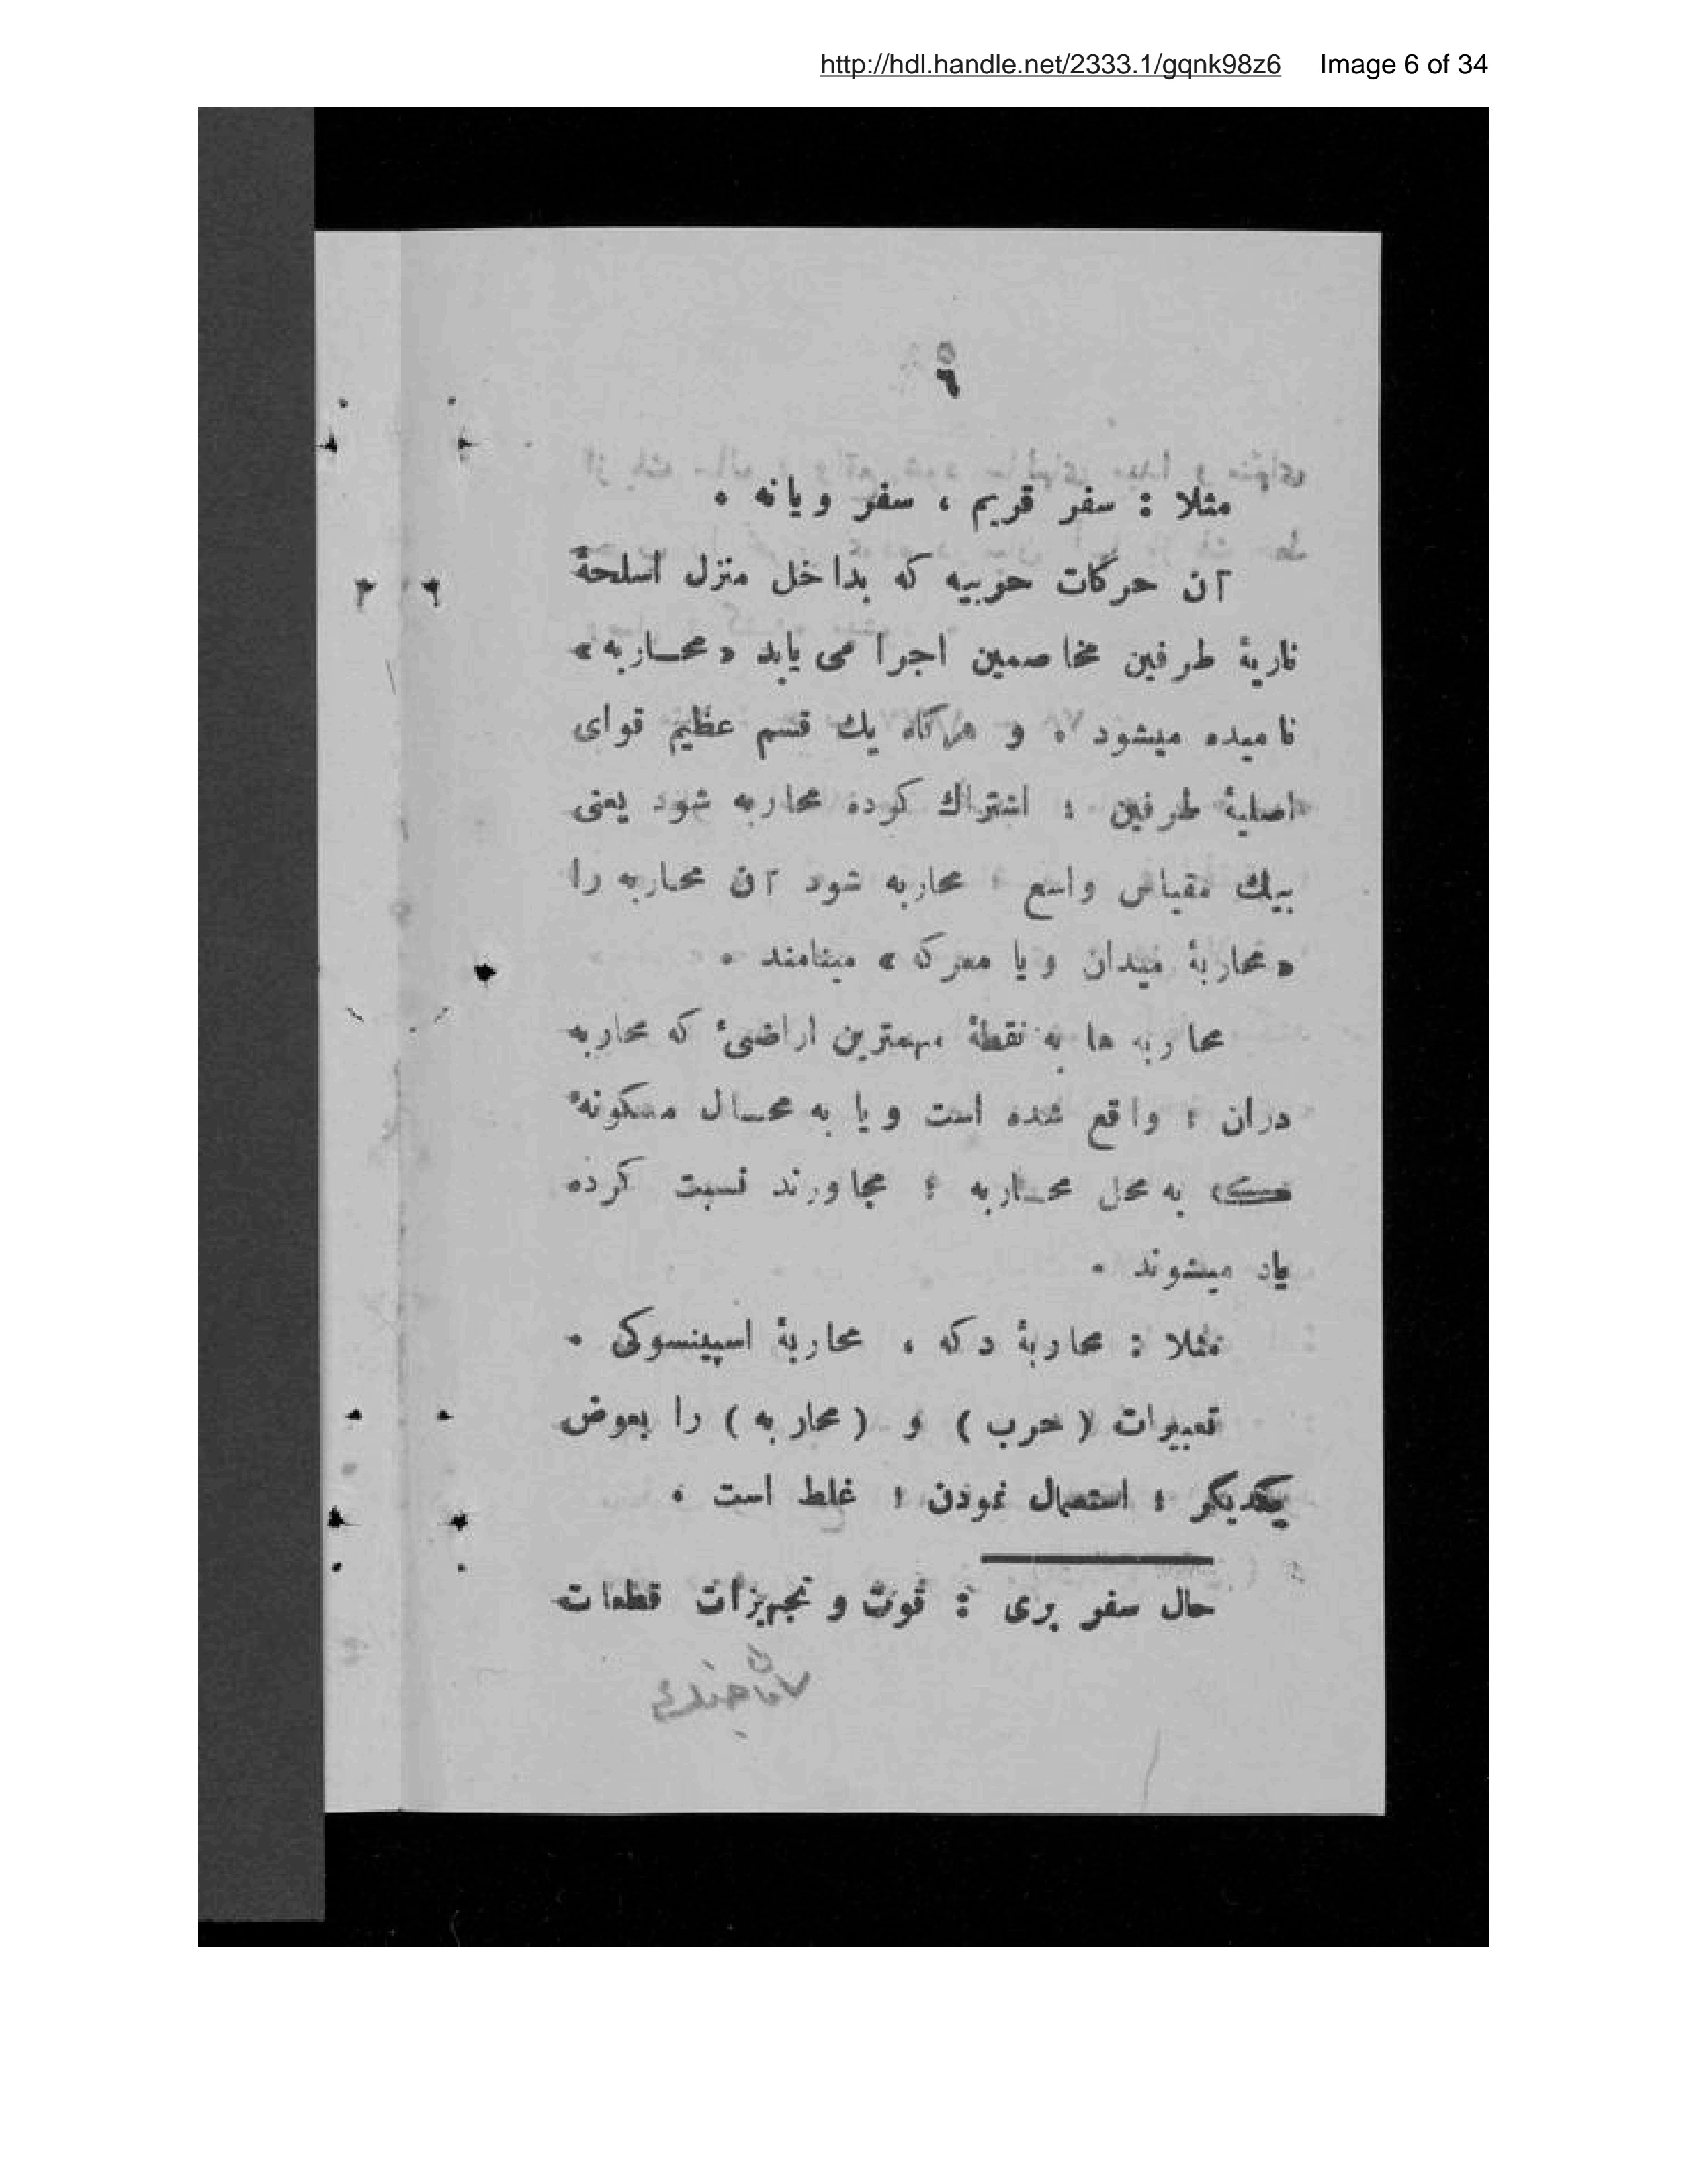 http://hdl.handle.net/2333.1/gqnk98z6 Image 6 of 34
٦
مثلا : سفر قریم ، سفر ویانه .
آن حرکات حربیه که بداخل منزل اسلحهٔ
ناریهٔ طرفین مخاصمین اجرا می یابد «محاربه»
نامیده میشود . و هرکاه یك قسم عظیم قوای
اصلیهٔ طرفین ؛ اشتراك کرده محاربه شود یعنی
بیك مقیاس واسع ؛ محاربه شود آن محاربه را
«محاربهٔ میدان ویا معرکه» مینامند .
محاربه ها به نقطهٔ مهمترین اراضیٔ که محاربه
دران ؛ واقع شده است ویا به محال مسکونهٔ
که به محل محاربه ؛ مجاورند نسبت کرده
یاد میشوند .
مثلا : محاربهٔ دکه ، محاربهٔ اسپینسوکی .
تعبیرات (حرب) و (محاربه) را بعوض
یکدیکر ؛ استعمال نمودن ؛ غلط است .
حال سفر بری : قوت و تجهیزات قطعات